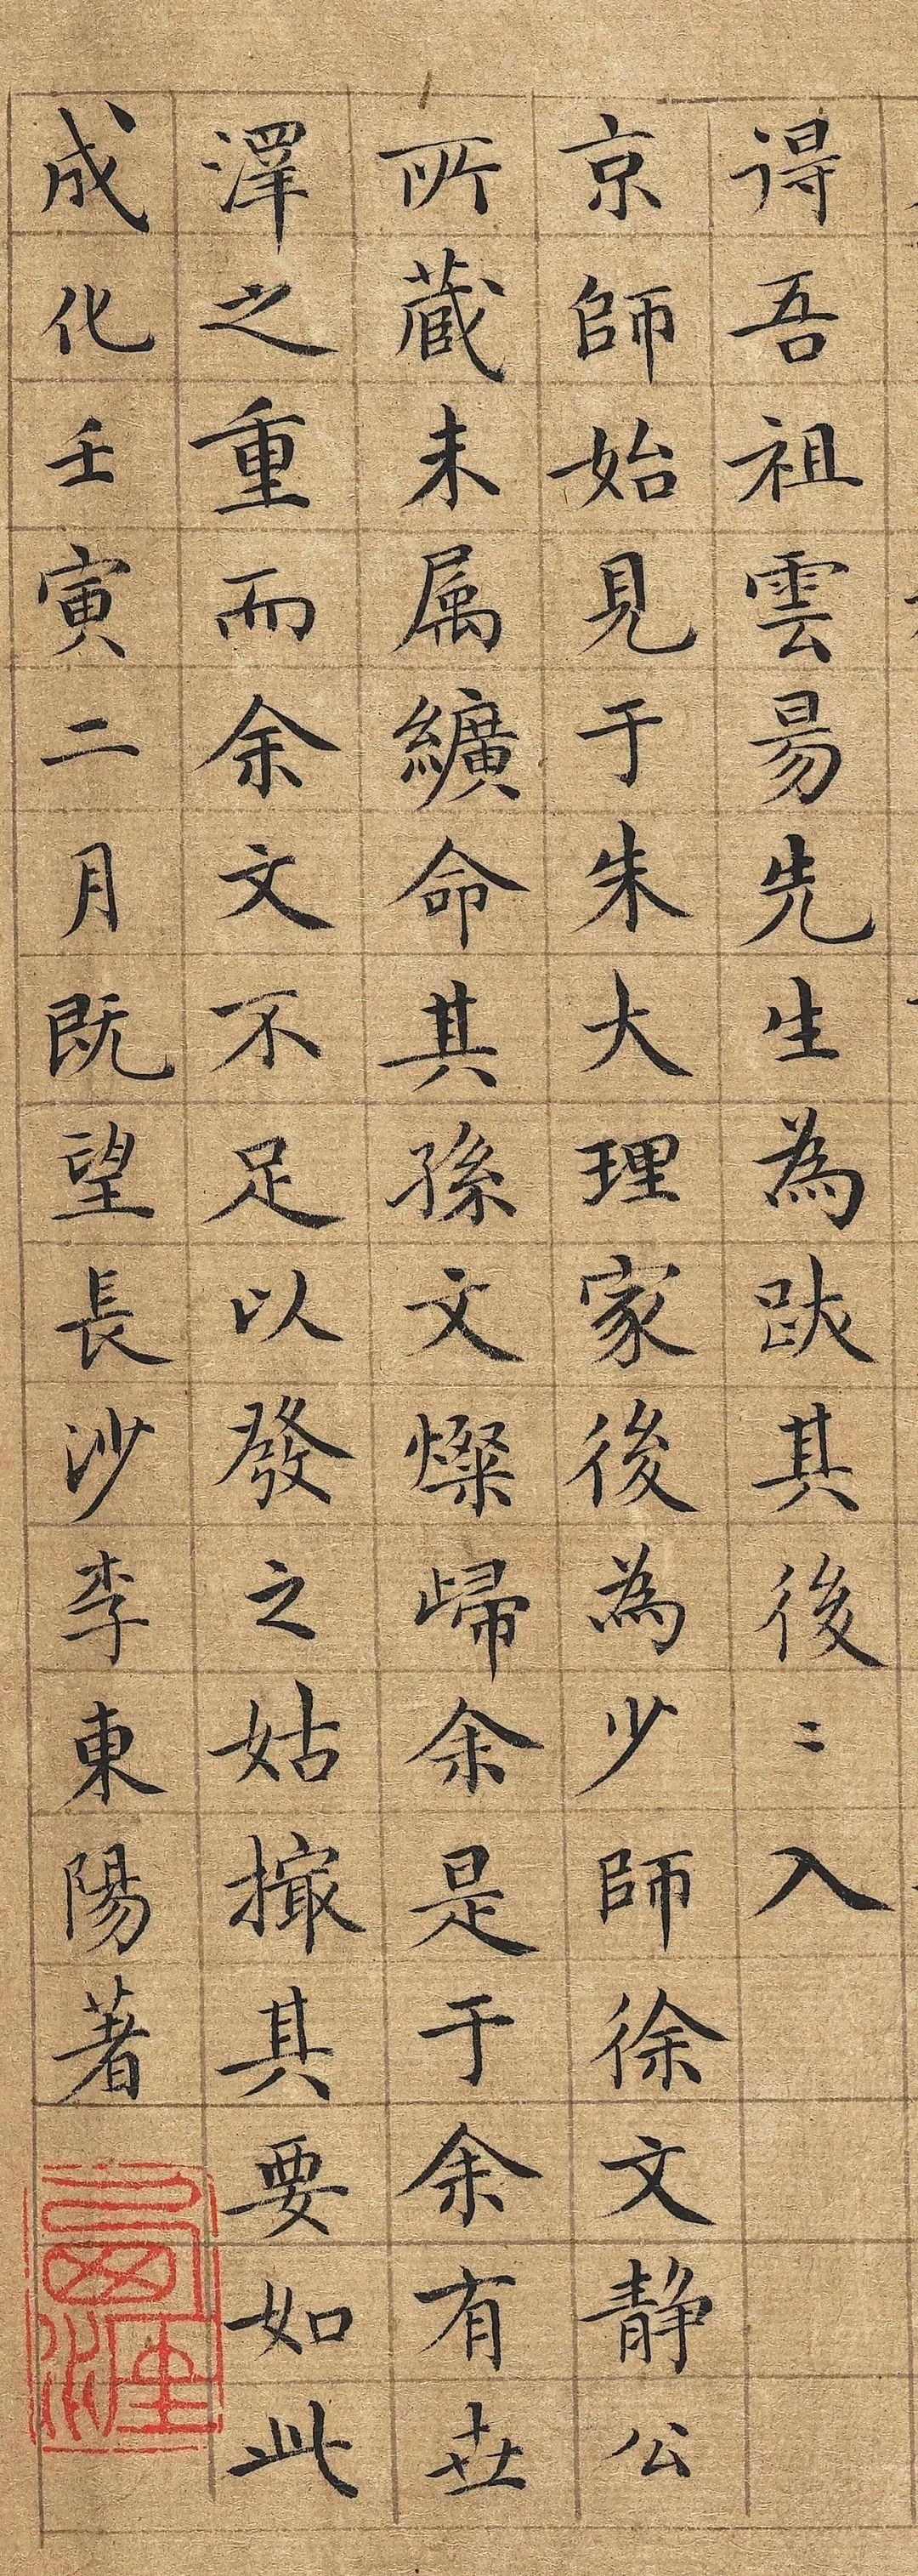 得吾祖雲昜先生為跋其後〻入
京師始見于朱大理家後為少師徐文靜公
所蔵未属纊命其孫文燦歸余是于余有世
澤之重而余文不足以發之姑撮其要如此
成化壬寅二月既望長沙李東陽著
西涯